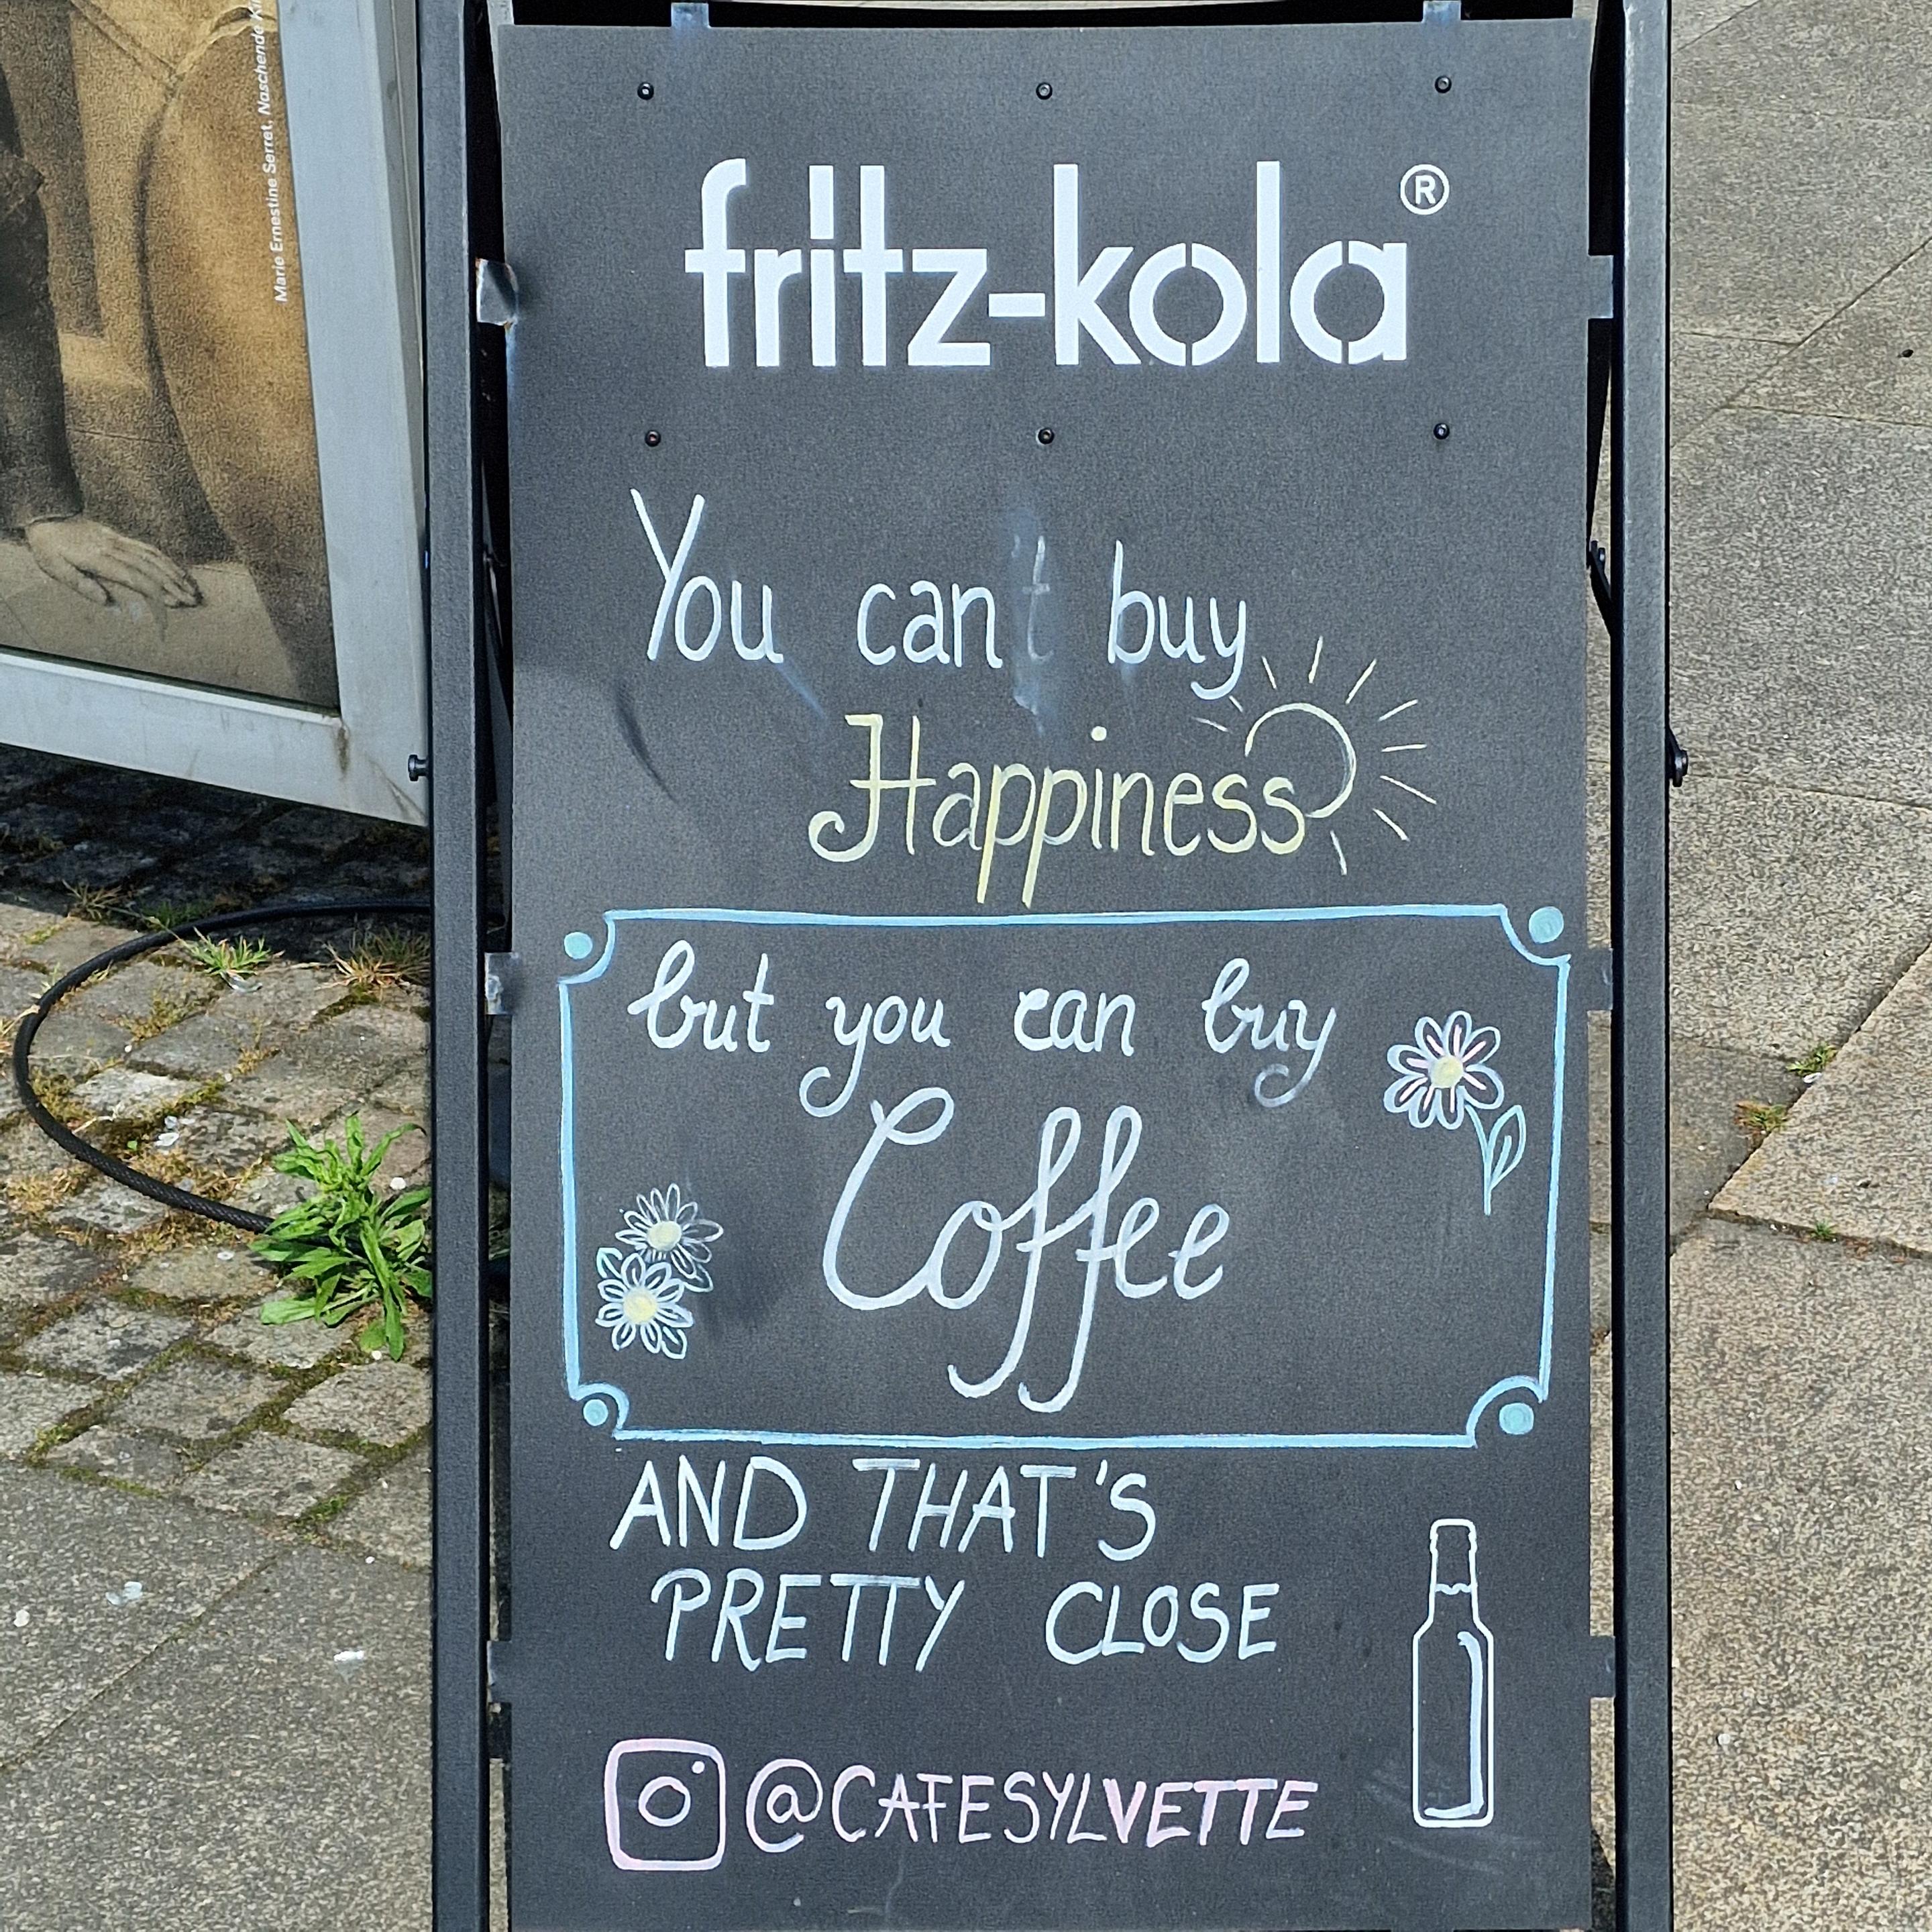 Marie Ernestine Serret, Naschende
fritz-kola®
You can't buy
Happiness
but you can buy
Coffee
AND THAT'S
PRETTY CLOSE
@CAFESYLVETTE